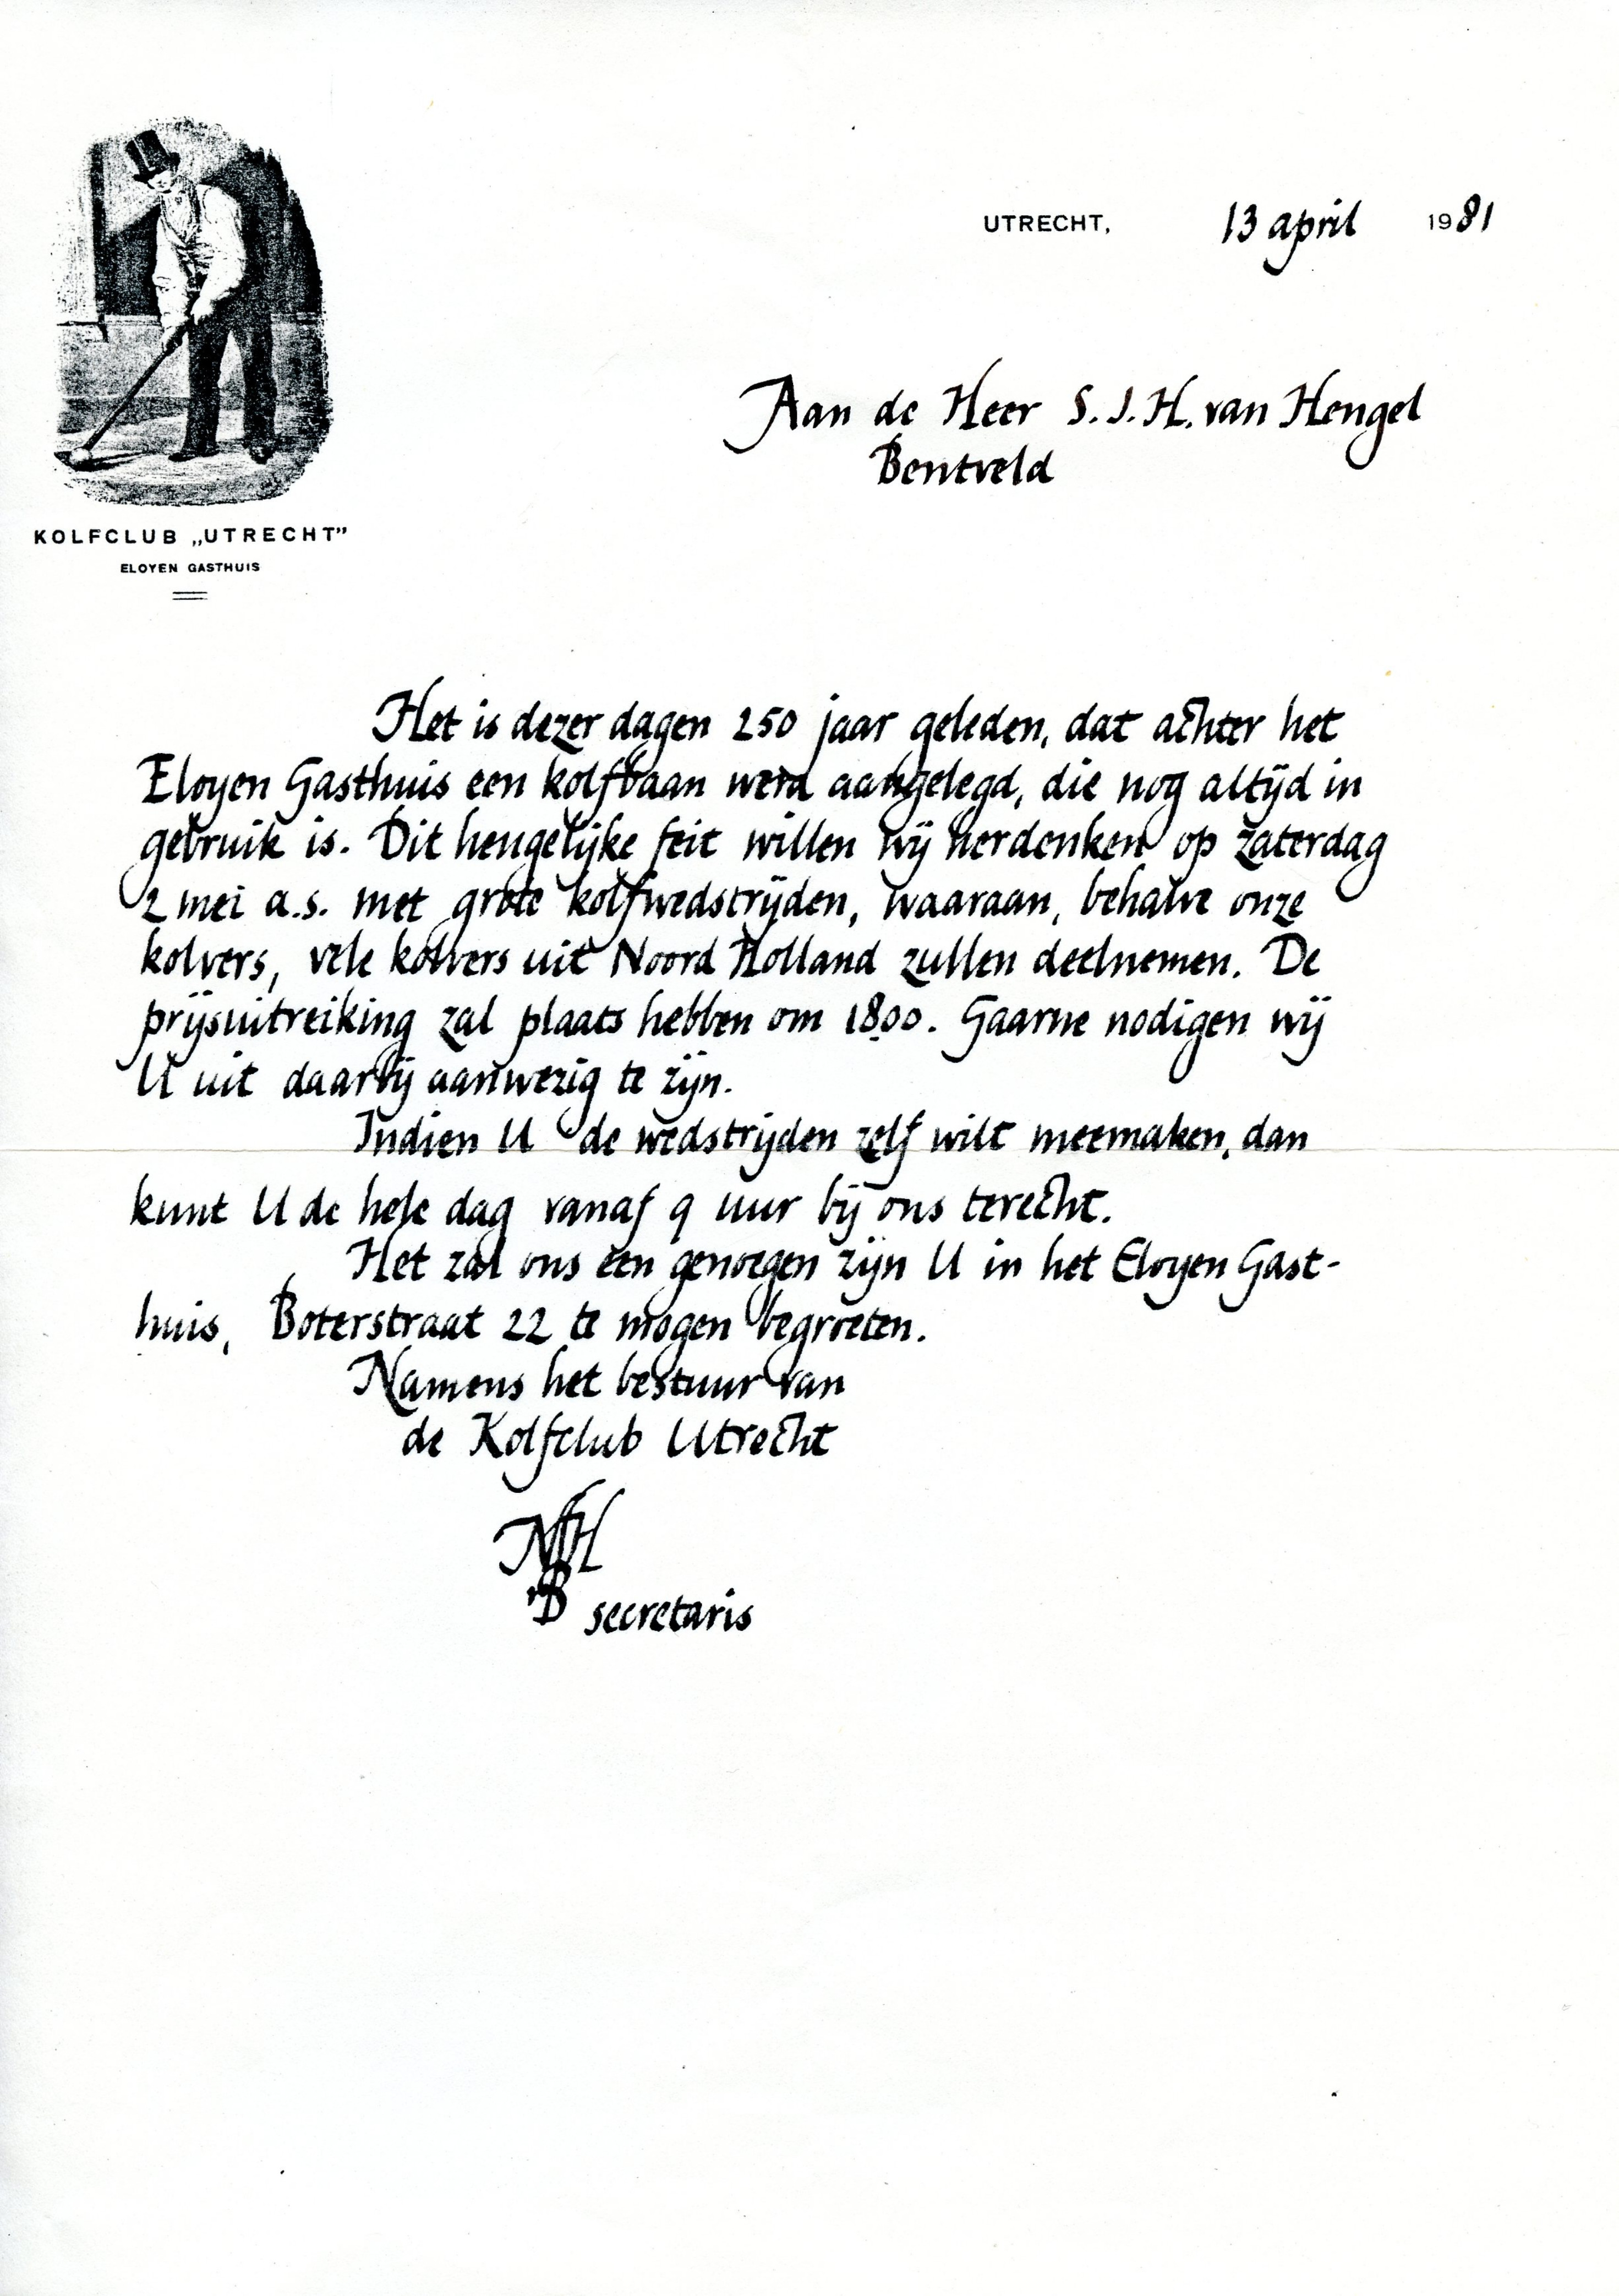 UTRECHT, 13 april 1981
Aan de Heer S. J. H. van Hengel
Bentveld
KOLFCLUB „UTRECHT”
ELOYEN GASTHUIS
Het is dezer dagen 250 jaar geleden, dat achter het
Eloyen Gasthuis een kolfbaan werd aangelegd, die nog altijd in
gebruik is. Dit heugelijke feit willen wij herdenken op zaterdag
2 mei a.s. met grote kolfwedstrijden, waaraan, behalve onze
kolvers, vele kolvers uit Noord Holland zullen deelnemen. De
prijsuitreiking zal plaats hebben om 18.00. Gaarne nodigen wij
U uit daarbij aanwezig te zijn.
Indien U de wedstrijden zelf wilt meemaken, dan
kunt U de hele dag vanaf 9 uur bij ons terecht.
Het zal ons een genoegen zijn U in het Eloyen Gast-
huis, Boterstraat 22 te mogen begroeten.
Namens het bestuur van
de Kolfclub Utrecht
secretaris